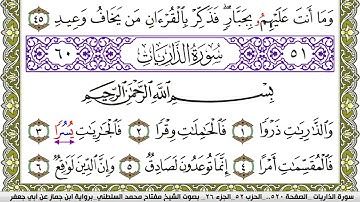 وَمَا أَنتَ عَلَيْهِمُۥ بِجَبَّارٍۖ فَذَكِّرْ بِالْقُرْءَانِ مَن يَخَافُ وَعِيدِ ٤٥
٥١ سُورَةُ الذَّارِيَاتِ ٦٠
بِسْمِ اللَّهِ الرَّحْمَٰنِ الرَّحِيمِ
وَالذَّٰرِيَٰتِ ذَرْوًا ١ فَالْحَٰمِلَٰتِ وِقْرًا ٢ فَالْجَٰرِيَٰتِ يُسُرًا ٣
فَالْمُقَسِّمَٰتِ أَمْرًا ٤ إِنَّمَا تُوعَدُونَ لَصَادِقٌ ٥ وَإِنَّ الدِّينَ لَوَٰقِعٌ ٦
سورة الذاريات الصفحة ٥٢٠ الحزب ٥٢ الجزء ٢٦ بصوت الشيخ مفتاح محمد السلطني برواية ابن جماز عن ابي جعفر